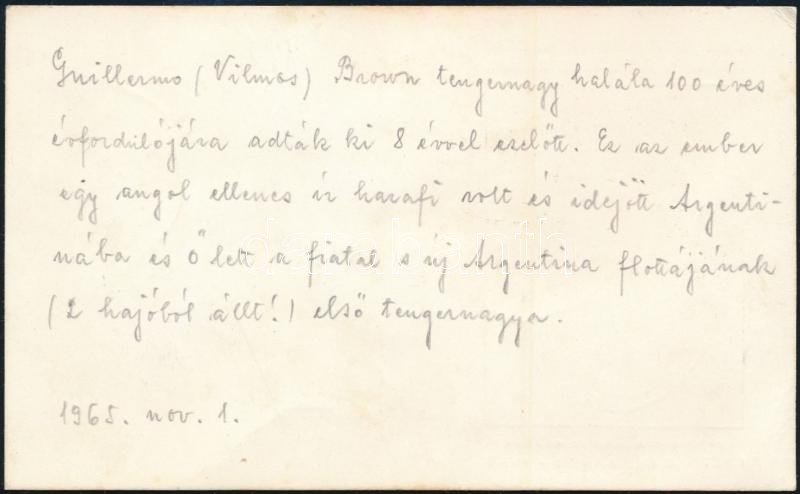 Guillermo (Vilmos) Brown tengernagy halála 100 éves
évfordulójára adták ki 8 évvel ezelőtt. Ez az ember
egy angol ellenes ír hazafi volt és idejött Argenti-
nába és ő lett a fiatal s új Argentina flottájának
(2 hajóból állt!) első tengernagya.
1965. nov. 1.